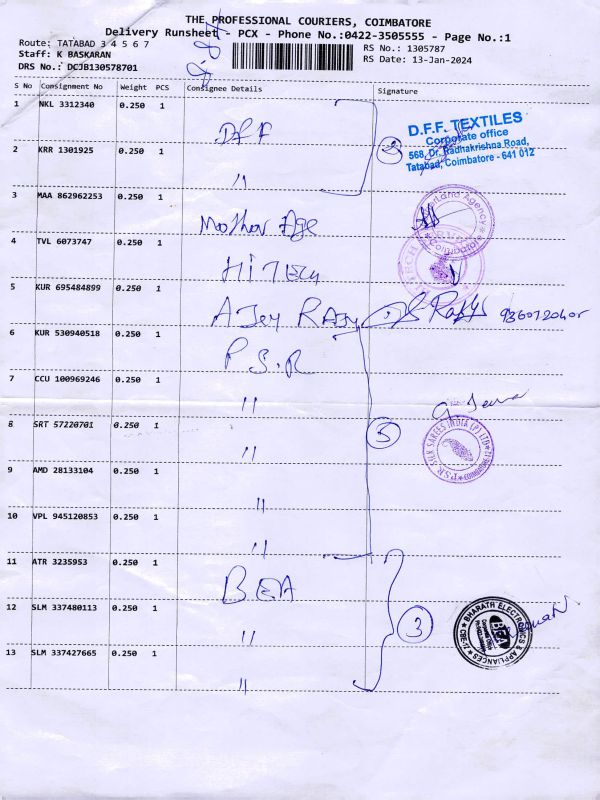 THE PROFESSIONAL COURIERS, COIMBATORE
Delivery Runsheet - PCX - Phone No.:0422-3505555 - Page No.:1
Route: TATABAD 3 4 5 6 7
Staff: K BASKARAN
DRS No.: DCJB130578701
RS No.: 1305787
RS Date: 13-Jan-2024
S No Consignment No Weight PCS Consignee Details Signature
1 NKL 3312340 0.250 1 DFF
2 KRR 1301925 0.250 1 "
2
D.F.F. TEXTILES
Corporate office
568, Dr. Radhakrishna Road,
Tatabad, Coimbatore - 641 012
3 MAA 862962253 0.250 1 Mother Age
4 TVL 6073747 0.250 1 HiTech
5 KUR 695484899 0.250 1 AJey RAJy
6 KUR 530940518 0.250 1 P.S.R
7 CCU 100969246 0.250 1 "
8 SRT 57220701 0.250 1 "
5
P.S.R. SILK SAREES INDIA (P) LTD
9 AMD 28133104 0.250 1 "
10 VPL 945120853 0.250 1 "
11 ATR 3235953 0.250 1 BEA
12 SLM 337480113 0.250 1 "
3
BHARATH ELECTRONICS & APPLIANCES
CBE-12
13 SLM 337427665 0.250 1 "